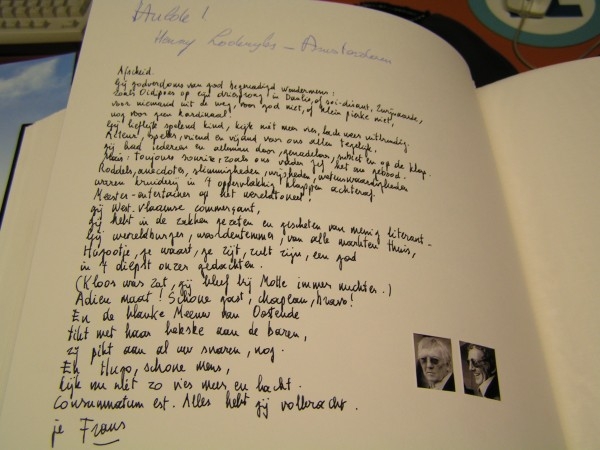 Hulde!
Harry - Amsterdam
Afscheid.
Gij godverdoms van god begenadigd wondermens:
zoals Oidipoes op zijn driesprong in Daulia, of soi-disant,
voor niemand uit de weg, voor god niet, of klein pierke niet,
nog voor geen kardinaal!
Gij lieflijk spelend kind, kijk niet meer vies, lach weer uitbundig.
Acteur, speler, vriend en vijand voor ons allen tegelijk,
gij had iedereen en allemaal door, genadeloos, subiet en op de klap.
Mais: toujours sourire, zoals ons vader zei het ons gebood.
Roddels, anecdotes, slimmigheden, vrijsheden, wetenswaardigheden
waren kruiderij in 't oppervlakkig klappen achteraf.
Meester-entertainer op het wereldtoneel!
gij West-Vlaamse commerçant,
gij hebt in de zakken gezeten en gescheten van menig literant -
Gij wereldburger, woordentemmer, van alle markten thuis,
Hugootje, ge waart, ge zijt, zult zijn, een god
in 't diepst onzer gedachten.
(Kloos was zat, gij bleef bij Motte immer nuchter.)
Adieu maat! Schone gast, chapeau, bravo!
En de blanke Meeuw van Oostende
tikt met haar bekske aan de baren,
zij pikt aan al uw snaren, nog.
En Hugo, schone mens,
kijk nu niet zo vies meer, en lacht.
Consummatum est. Alles hebt gij volbracht.
je Frans